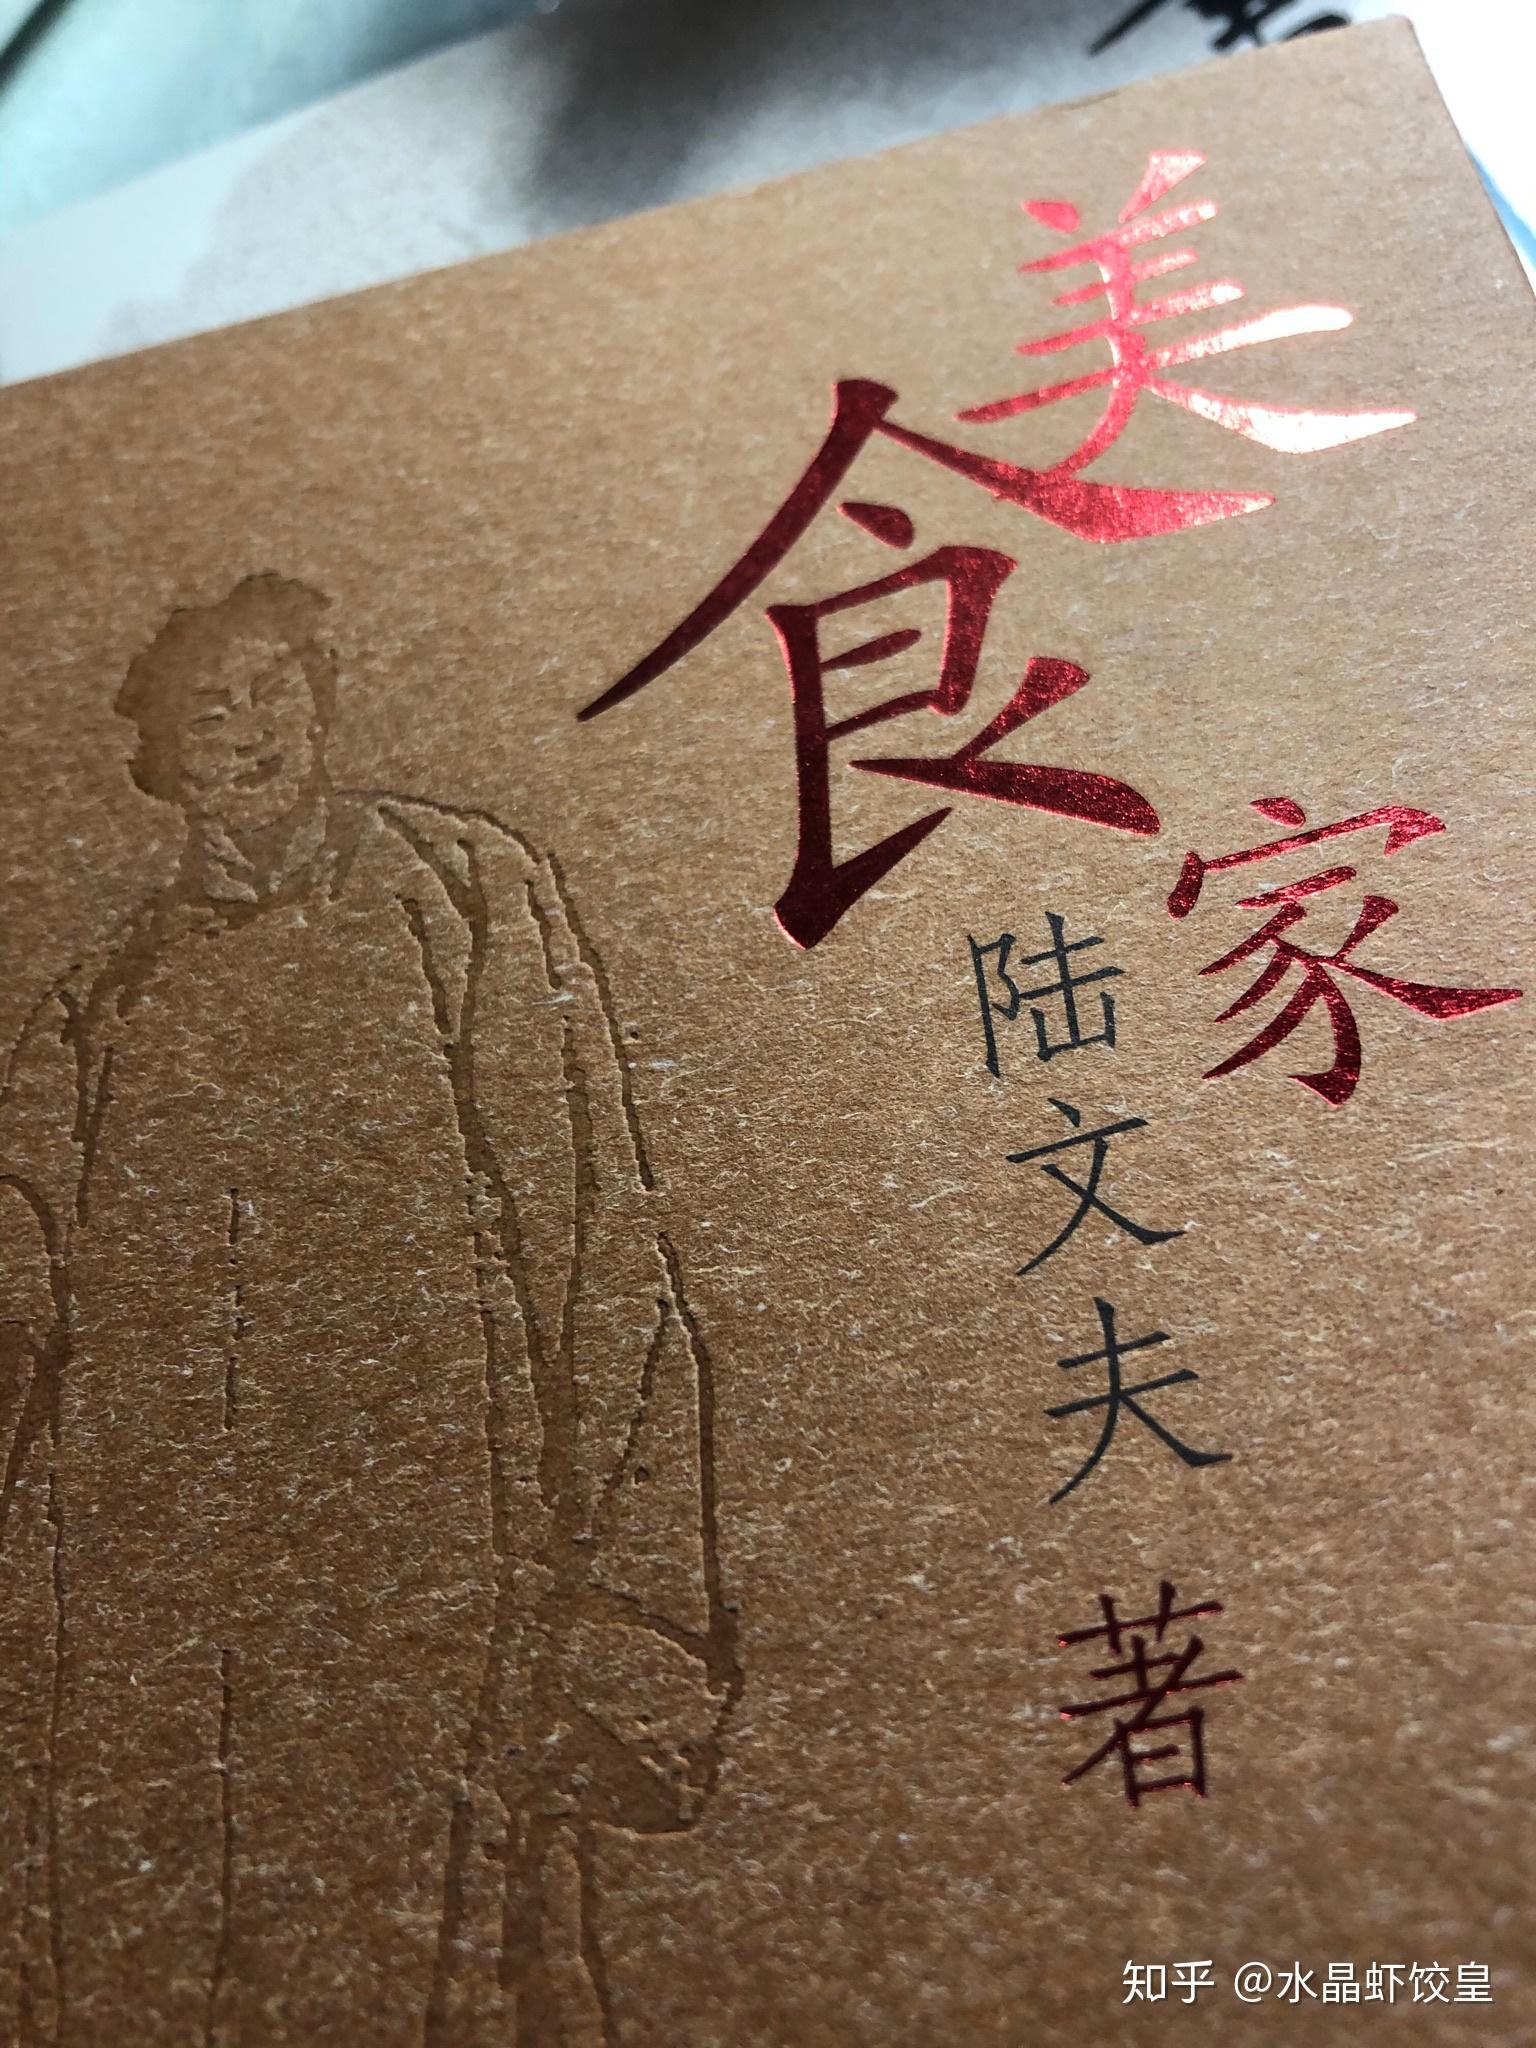 美食家
陆文夫 著
知乎 @水晶虾饺皇